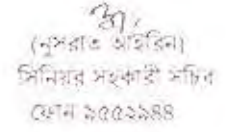 (নুসরাত আইরিন)
সিনিয়র সহকারী সচিব
ফোন ৯৫৫২৯৪৪